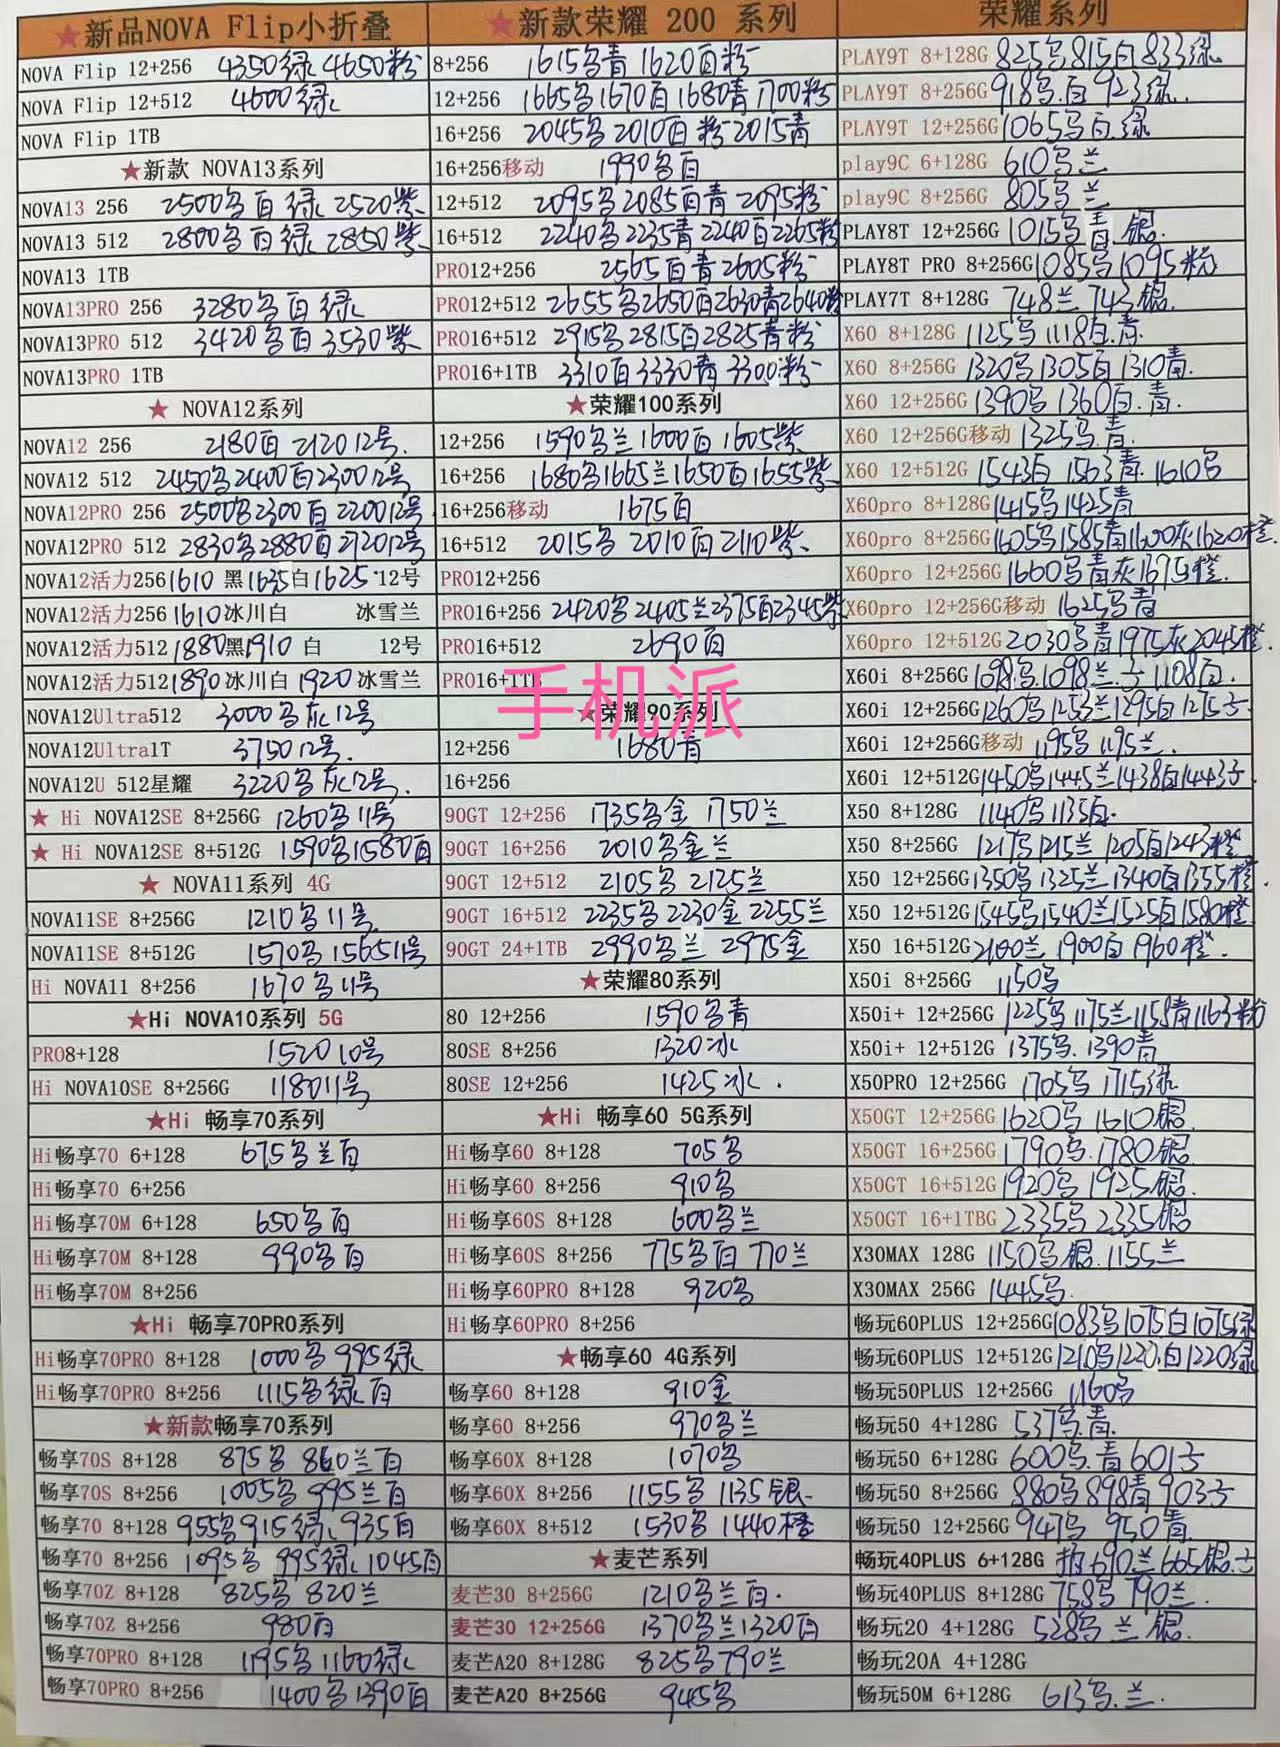 ★新品NOVA Flip小折叠
NOVA Flip 12+256 4350绿 4650粉
NOVA Flip 12+512 4600绿
NOVA Flip 1TB
★新款 NOVA13系列
NOVA13 256 2500白绿 2520紫
NOVA13 512 2800白绿 2850紫
NOVA13 1TB
NOVA13PRO 256 3280白绿
NOVA13PRO 512 3420白 3530紫
NOVA13PRO 1TB
★ NOVA12系列
NOVA12 256 2180白 2120 12号
NOVA12 512 2450 2400白 2300 12号
NOVA12PRO 256 2500 2300白 2200 12号
NOVA12PRO 512 2830 2880白 2720 12号
NOVA12活力256 1610 黑 1635白 1625 12号
NOVA12活力256 1610冰川白 冰雪兰
NOVA12活力512 1880黑 1910 白 12号
NOVA12活力512 1890冰川白 1920 冰雪兰
NOVA12Ultra512 3000灰12号
NOVA12Ultra1T 3750 12号.
NOVA12U 512星耀 3220灰12号.
★ Hi NOVA12SE 8+256G 1260 11号
★ Hi NOVA12SE 8+512G 1590 1580白
★ NOVA11系列 4G
NOVA11SE 8+256G 1210 11号
NOVA11SE 8+512G 1570 1565 11号
Hi NOVA11 8+256 1670 11号
★Hi NOVA10系列 5G
PRO8+128 1520 10号
Hi NOVA10SE 8+256G 1180 11号
★Hi 畅享70系列
Hi畅享70 6+128 675兰白
Hi畅享70 6+256
Hi畅享70M 6+128 650白
Hi畅享70M 8+128 990白
Hi畅享70M 8+256
★Hi 畅享70PRO系列
Hi畅享70PRO 8+128 1000 995绿
Hi畅享70PRO 8+256 1115绿白
★新款畅享70系列
畅享70S 8+128 875 860兰白
畅享70S 8+256 1005 995兰白
畅享70 8+128 955 915绿 935白
畅享70 8+256 1095 995绿 1045白
畅享70Z 8+128 825 820兰
畅享70Z 8+256 980白
畅享70PRO 8+128 1195 1160绿
畅享70PRO 8+256 1400 1390白
★新款荣耀 200 系列
8+256 1615青 1620白粉
12+256 1665 1670白 1680青 1700粉
16+256 2045 2010白粉 2015青
16+256移动 1990白
12+512 2095 2085白青 2095粉
16+512 2240 2235青 2240白 2265粉
PRO12+256 2565白青 2605粉
PRO12+512 2655 2650白 2630青 2640粉
PRO16+512 2915 2815白 2825青粉
PRO16+1TB 3310白 3330青 3300粉
★荣耀100系列
12+256 1590兰 1600白 1605紫
16+256 1680 1665兰 1650白 1655紫
16+256移动 1675白
16+512 2015 2010白 2110紫
PRO12+256
PRO16+256 2420 2405兰 2375白 2345紫
PRO16+512 2690白
PRO16+1TB
手机派
★荣耀90系列
12+256 1680青
16+256
90GT 12+256 1735金 1750兰
90GT 16+256 2010金兰
90GT 12+512 2105 2125兰
90GT 16+512 2235 2230金 2255兰
90GT 24+1TB 2990兰 2975金
★荣耀80系列
80 12+256 1590青
80SE 8+256 1320冰
80SE 12+256 1425冰.
★Hi 畅享60 5G系列
Hi畅享60 8+128 705
Hi畅享60 8+256 910
Hi畅享60S 8+128 600兰
Hi畅享60S 8+256 775白 770兰
Hi畅享60PRO 8+128 920
Hi畅享60PRO 8+256
★畅享60 4G系列
畅享60 8+128 910金
畅享60 8+256 970兰
畅享60X 8+128 1070
畅享60X 8+256 1155 1135银
畅享60X 8+512 1530 1440橙
★麦芒系列
麦芒30 8+256G 1210兰白.
麦芒30 12+256G 1370兰 1320白
麦芒A20 8+128G 825 790兰
麦芒A20 8+256G 945
荣耀系列
PLAY9T 8+128G 825 815白 833绿
PLAY9T 8+256G 918.白 923绿.
PLAY9T 12+256G 1065白.绿
play9C 6+128G 610兰
play9C 8+256G 805兰
PLAY8T 12+256G 1015青 银.
PLAY8T PRO 8+256G 1085 1095粉
PLAY7T 8+128G 748兰 743银.
X60 8+128G 1125 1118白.青
X60 8+256G 1320 1305白 1310青.
X60 12+256G 1390 1360白.青.
X60 12+256G移动 1325.青.
X60 12+512G 1543白 1563青. 1610
X60pro 8+128G 1415 1425青
X60pro 8+256G 1605 1585青 1600灰 1620橙.
X60pro 12+256G 1660青灰 1675橙.
X60pro 12+256G移动 1625青
X60pro 12+512G 2030青 1975灰 2045橙
X60i 8+256G 1098. 1098兰. 1108白.
X60i 12+256G 1260 1253兰 1295白 1275
X60i 12+256G移动 1195 1195兰.
X60i 12+512G 1450 1445兰 1438白 1443
X50 8+128G 1140 1135白.
X50 8+256G 1217 1215兰 1205白 1243橙
X50 12+256G 1350 1325兰 1340白 1355橙.
X50 12+512G 1545 1540兰 1525白 1580橙
X50 16+512G 2100兰 1900白 1960橙.
X50i 8+256G 1150
X50i+ 12+256G 1225 1175兰 1158青 1163粉
X50i+ 12+512G 1375. 1390青
X50PRO 12+256G 1705 1715绿
X50GT 12+256G 1620 1610银.
X50GT 16+256G 1790. 1780银.
X50GT 16+512G 1920 1925银.
X50GT 16+1TBG 2335 2335银
X30MAX 128G 1150银. 1155兰
X30MAX 256G 1445.
畅玩60PLUS 12+256G 1083 1075白 1075绿
畅玩60PLUS 12+512G 1210 1220.白 1220绿
畅玩50PLUS 12+256G 1160
畅玩50 4+128G 537.青.
畅玩50 6+128G 600.青 601
畅玩50 8+256G 880 898青 903
畅玩50 12+256G 947 950青.
畅玩40PLUS 6+128G 690兰 665银.
畅玩40PLUS 8+128G 758 790兰.
畅玩20 4+128G 528兰 银.
畅玩20A 4+128G
畅玩50M 6+128G 613.兰.